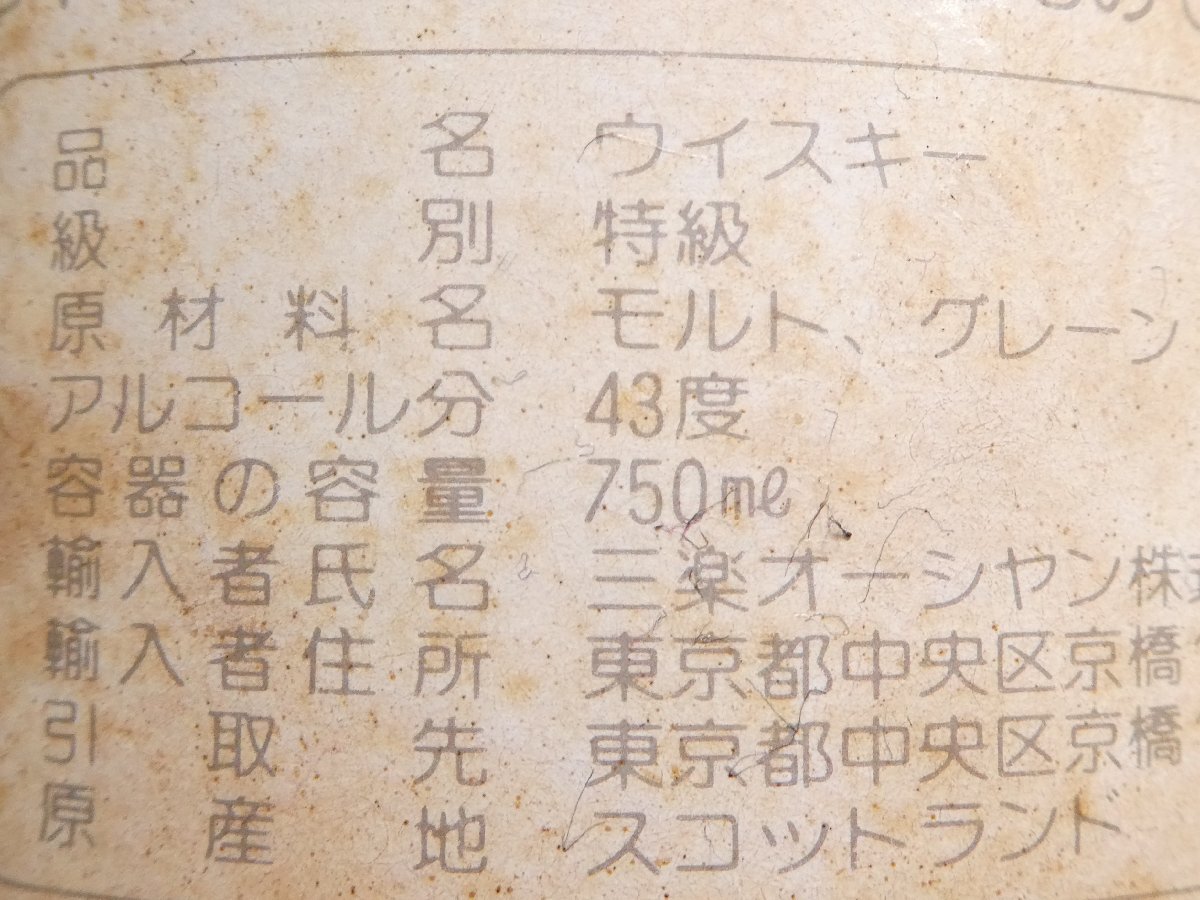 品名 ウイスキー
級別 特級
原材料名 モルト、グレーン
アルコール分 43度
容器の容量 750ml
輸入者氏名 三楽オーシヤン株式
輸入者住所 東京都中央区京橋
引取先 東京都中央区京橋
原産地 スコットランド